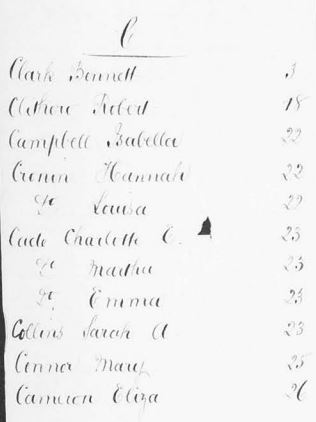 C
Clark Bennett 3
Robert 18
Campbell Isabella 22
Cronin Hannah 22
Do Louisa 22
Cade Charlotte E. 23
Do Martha 23
Do Emma 23
Collins Sarah A 23
Connor Mary 25
Cameron Eliza 26